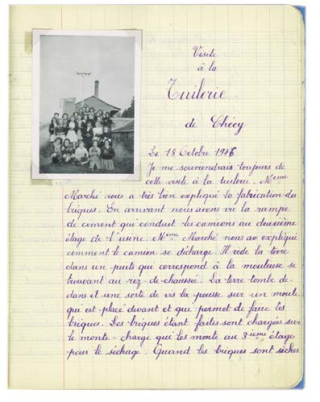 Visite
à la
Tuilerie
de Chécy
Le 18 Octobre 1946
Je me souviendrais toujours de
cette visite à la tuilerie. Mme
Marché nous a très bien expliqué la fabrication des
briques. En arrivant nous avons vu la rampe
de ciment qui conduit les camions au deuxième
étage de l'usine. Mme Marché nous a expliqué
comment le camion se décharge. Il vide la terre
dans un puits qui correspond à la mouleuse se
trouvant au rez-de-chaussé. La terre tombe de-
dans et une sorte de vis la pousse sur un moule
qui est placé devant et qui permet de faire les
briques. Les briques étant faites sont chargées sur
le monte-charge qui les monte au 3ième étage
pour le séchage. Quand les briques sont sèches